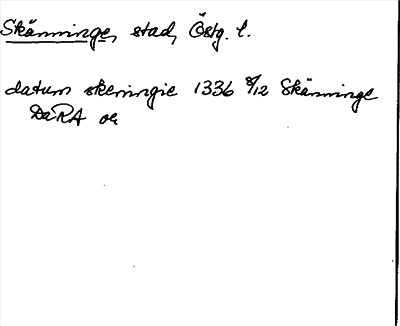 Skänninge, stad, Östg. l.
datum skeningie 1336 8/12 Skänninge
DaRA or